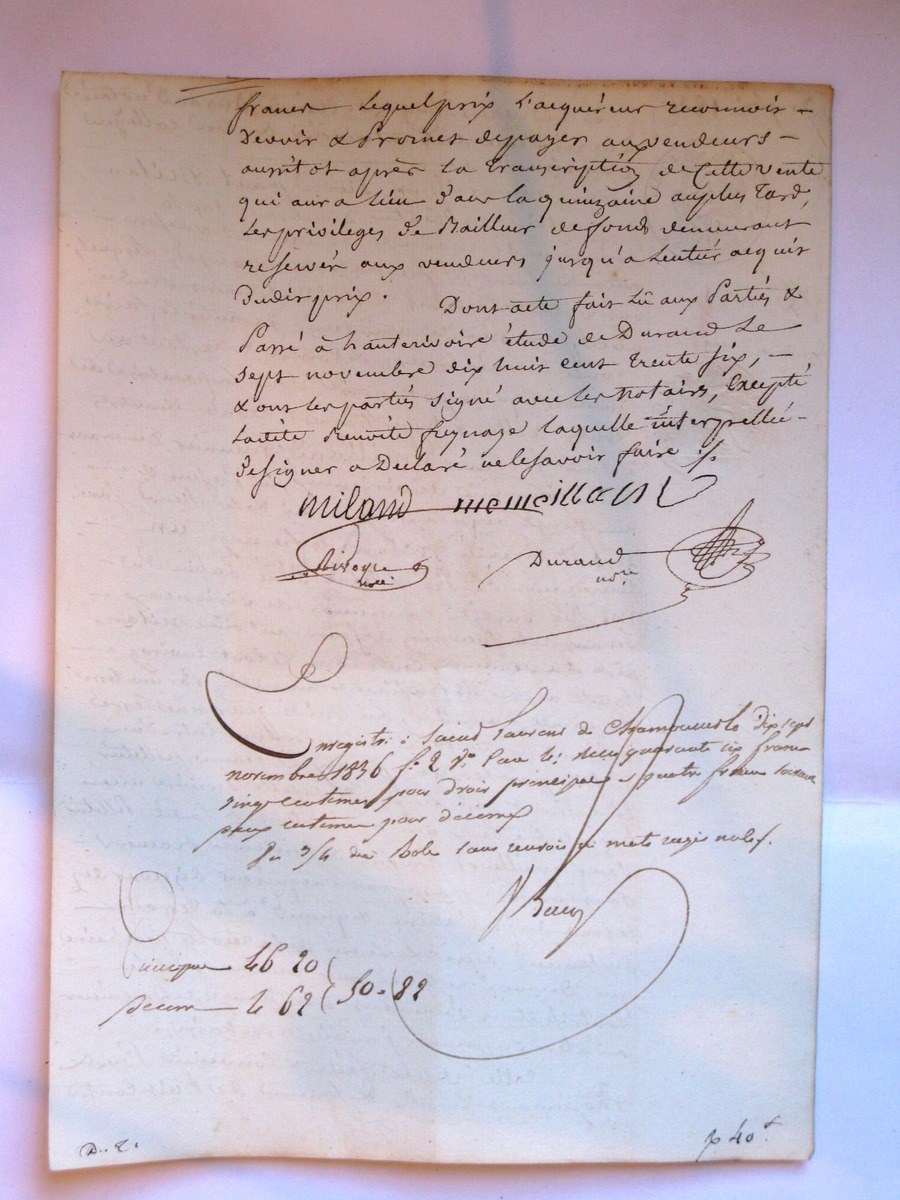 francs lequel prix l'acquéreur reconnoit
devoir & Promet de payer aux vendeurs
aussitot après la transcription de Cette vente
qui aura lieu dans la quinzaine au plus Tard,
Les privileges de Bailleur de fond demeurant
reservés aux vendeurs jusqu'a Lentier acquit
Dudit prix. Dont acte fait Lû aux Parties &
Passé à hauterivoire étude de Durand Le
sept novembre dix huit cent trente six,
& ont les parties signé avec les Notaires, Excepté
Ladite Benoite freynage laquelle interpellée
de signer a Declaré ne le savoir faire ./.
miland
Durand
nore
Enregistré à Saint Laurent de Chamousset le dix sept
novembre 1836 fo 2 Vo Case 4: Reçu quarante six francs
vingt centimes pour droit principal et quatre francs soixante
deux centimes pour décime
sans renvoi ni mots rayés nuls.
Principal 46 20
Décime 4 62
50 = 82
D.. 2.
40